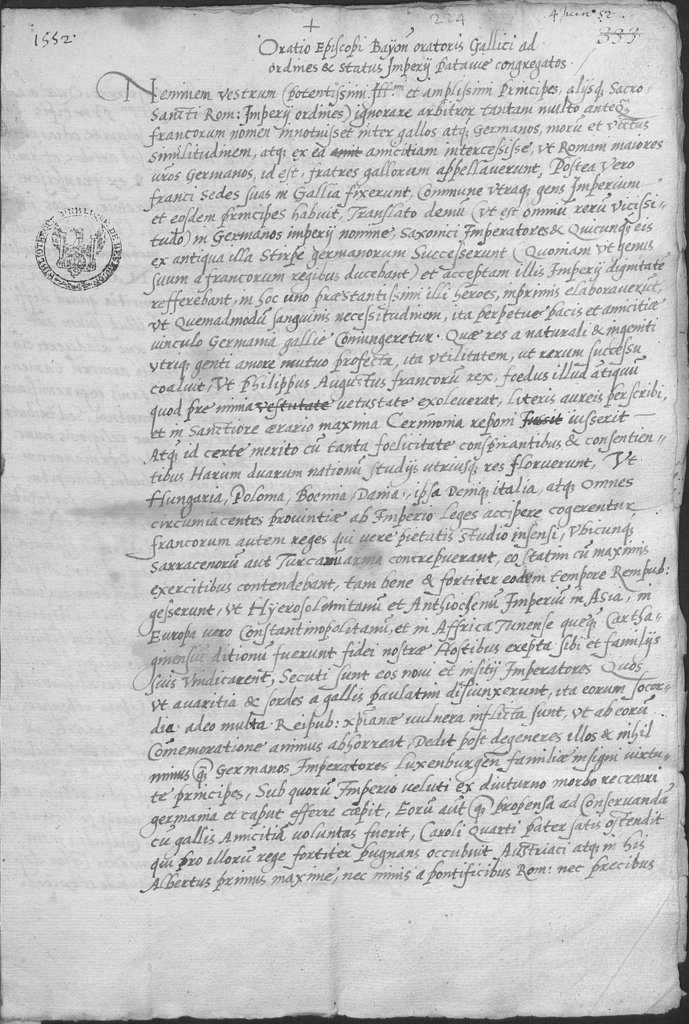 +
224
4 Juin 52.
1552.
333
Oratio Episcopi Bayon oratoris Gallici ad
ordines & Status Imperij Patavie congregatos.
Neminem vestrum (potentissimi Ill.mi et amplissimi Principes, alijsq Sacro-
Sancti Rom: Imperij ordines) ignorare arbitror tantam multo anteq
francorum nomen innotuisset inter gallos atq Germanos, morū et victus
similitudinem, atq ex ea amicitiam intercessisse, ut Romam maiores
vros Germanos, id est, fratres gallorum appellaverunt, Postea vero
franci Sedes suas in Gallia fixerunt, Commune utraq gens Imperium
et eosdem principes habuit, Translato demū (ut est omniū rerū vicissi-
tudo) in Germanos imperij nomine, Saxonici Imperatores & Quicunq eis
ex antiqua illa Stirpe germanorum Successerunt (Quoniam ut genus
suum a francorum regibus ducebant) et acceptam illis Imperij dignitatē
refferebant, in hoc uno præstantissimi illi heroes, inprimis elaboraverūt,
ut Quemadmodū sanguinis necessitudinem, ita perpetuę pacis et amicitiæ
vinculo Germania gallię Coniungeretur. Quæ res a naturali & ingeniti
utriq genti amore mutuo profecta, ita utilitatem, ut rerum successu
coaluit, Ut Philippus Augustus francorū rex, foedus illud antiquū
quod pre nimia vestutate vetustate exoleverat, literis aureis perscribi,
et in Sanctiore ærario maxima Cerimonia reponi Jussit iusserit
Atq id certe merito cū tanta foelicitate conspirantibus & consentien-
tibus Harum duarum nationū studijs utriusq res floruerunt, Ut
Hungaria, Polonia, Boemia, Dania, ipsa Deniq italia, atq omnes
circumiacentes provintiæ ab Imperio leges accipere cogerentur
francorum autem reges qui vere pietatis studio insensi, Ubicunq
Sarracenorū aut Turcarū arma concrepuerant, eo statim cū maximis
exercitibus contendebant, tam bene & fortiter eodem tempore Rempub:
gesserunt, ut Hyerosolomitanū et Anthiochenū Imperiū in Asia, in
Europa vero Constantinopolitanū, et in Affrica Tunense queq Cartha-
ginensiū ditionū fuerunt fidei nostre Hostibus erepta sibi et familijs
suis vindicarent, Secuti sunt eos novi et insitij Imperatores Quos
ut avaritia & sordes a gallis paulatim disiunxerunt, ita eorum socor-
dia adeo multa Reipub: xpianæ vulnera inflicta sunt, ut ab eorū
Comemoratione animus abhorreat, Dedit post degeneres illos & nihil
minus q Germanos Imperatores Luxenburgen familiæ insigni virtu-
te principes, Sub quorū Imperio veluti ex diuturno morbo recreari
germania et caput efferre cæpit, Eorū aut q propensa ad conservandā
cū gallis Amicitiā voluntas fuerit, Caroli Quarti pater satis ostendit
qui pro illorū rege fortiter pugnans occubuit, Austriaci atq in his
Albertus primus maxime, nec minis a pontificibus Rom: nec precibus